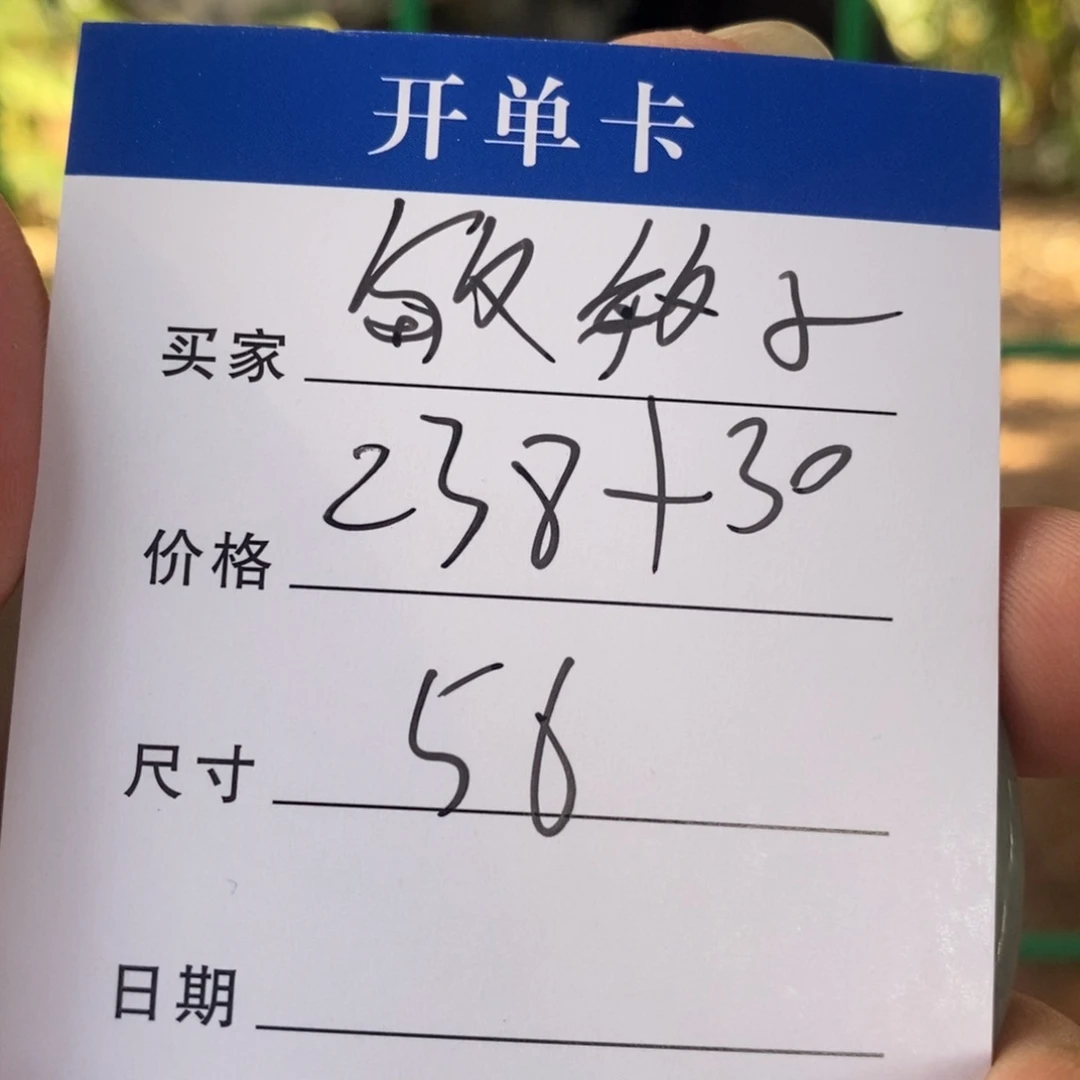 开单卡
买家 敏敏子
价格 238+30
尺寸 56
日期